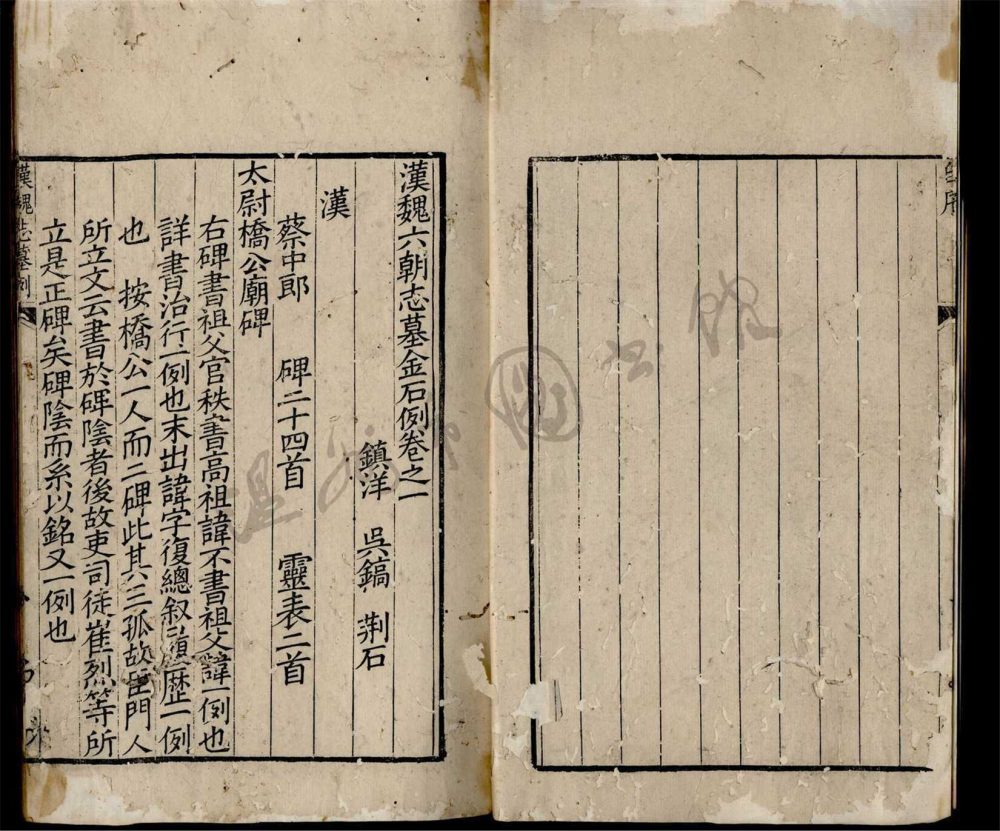 漢魏六朝志墓金石例卷之一
鎮洋 吳鎬 荆石
漢
蔡中郎 碑二十四首 靈表二首
太尉橋公廟碑
右碑書祖父官秩書高祖諱不書祖父諱一例也
詳書治行一例也末出諱字復總叙歷一例
也 按橋公一人而二碑此其六三孤故臣門人
所立文云書於碑陰者後故吏司徒崔烈等所
立是正碑矣碑陰而系以銘又一例也
漢魏志墓例